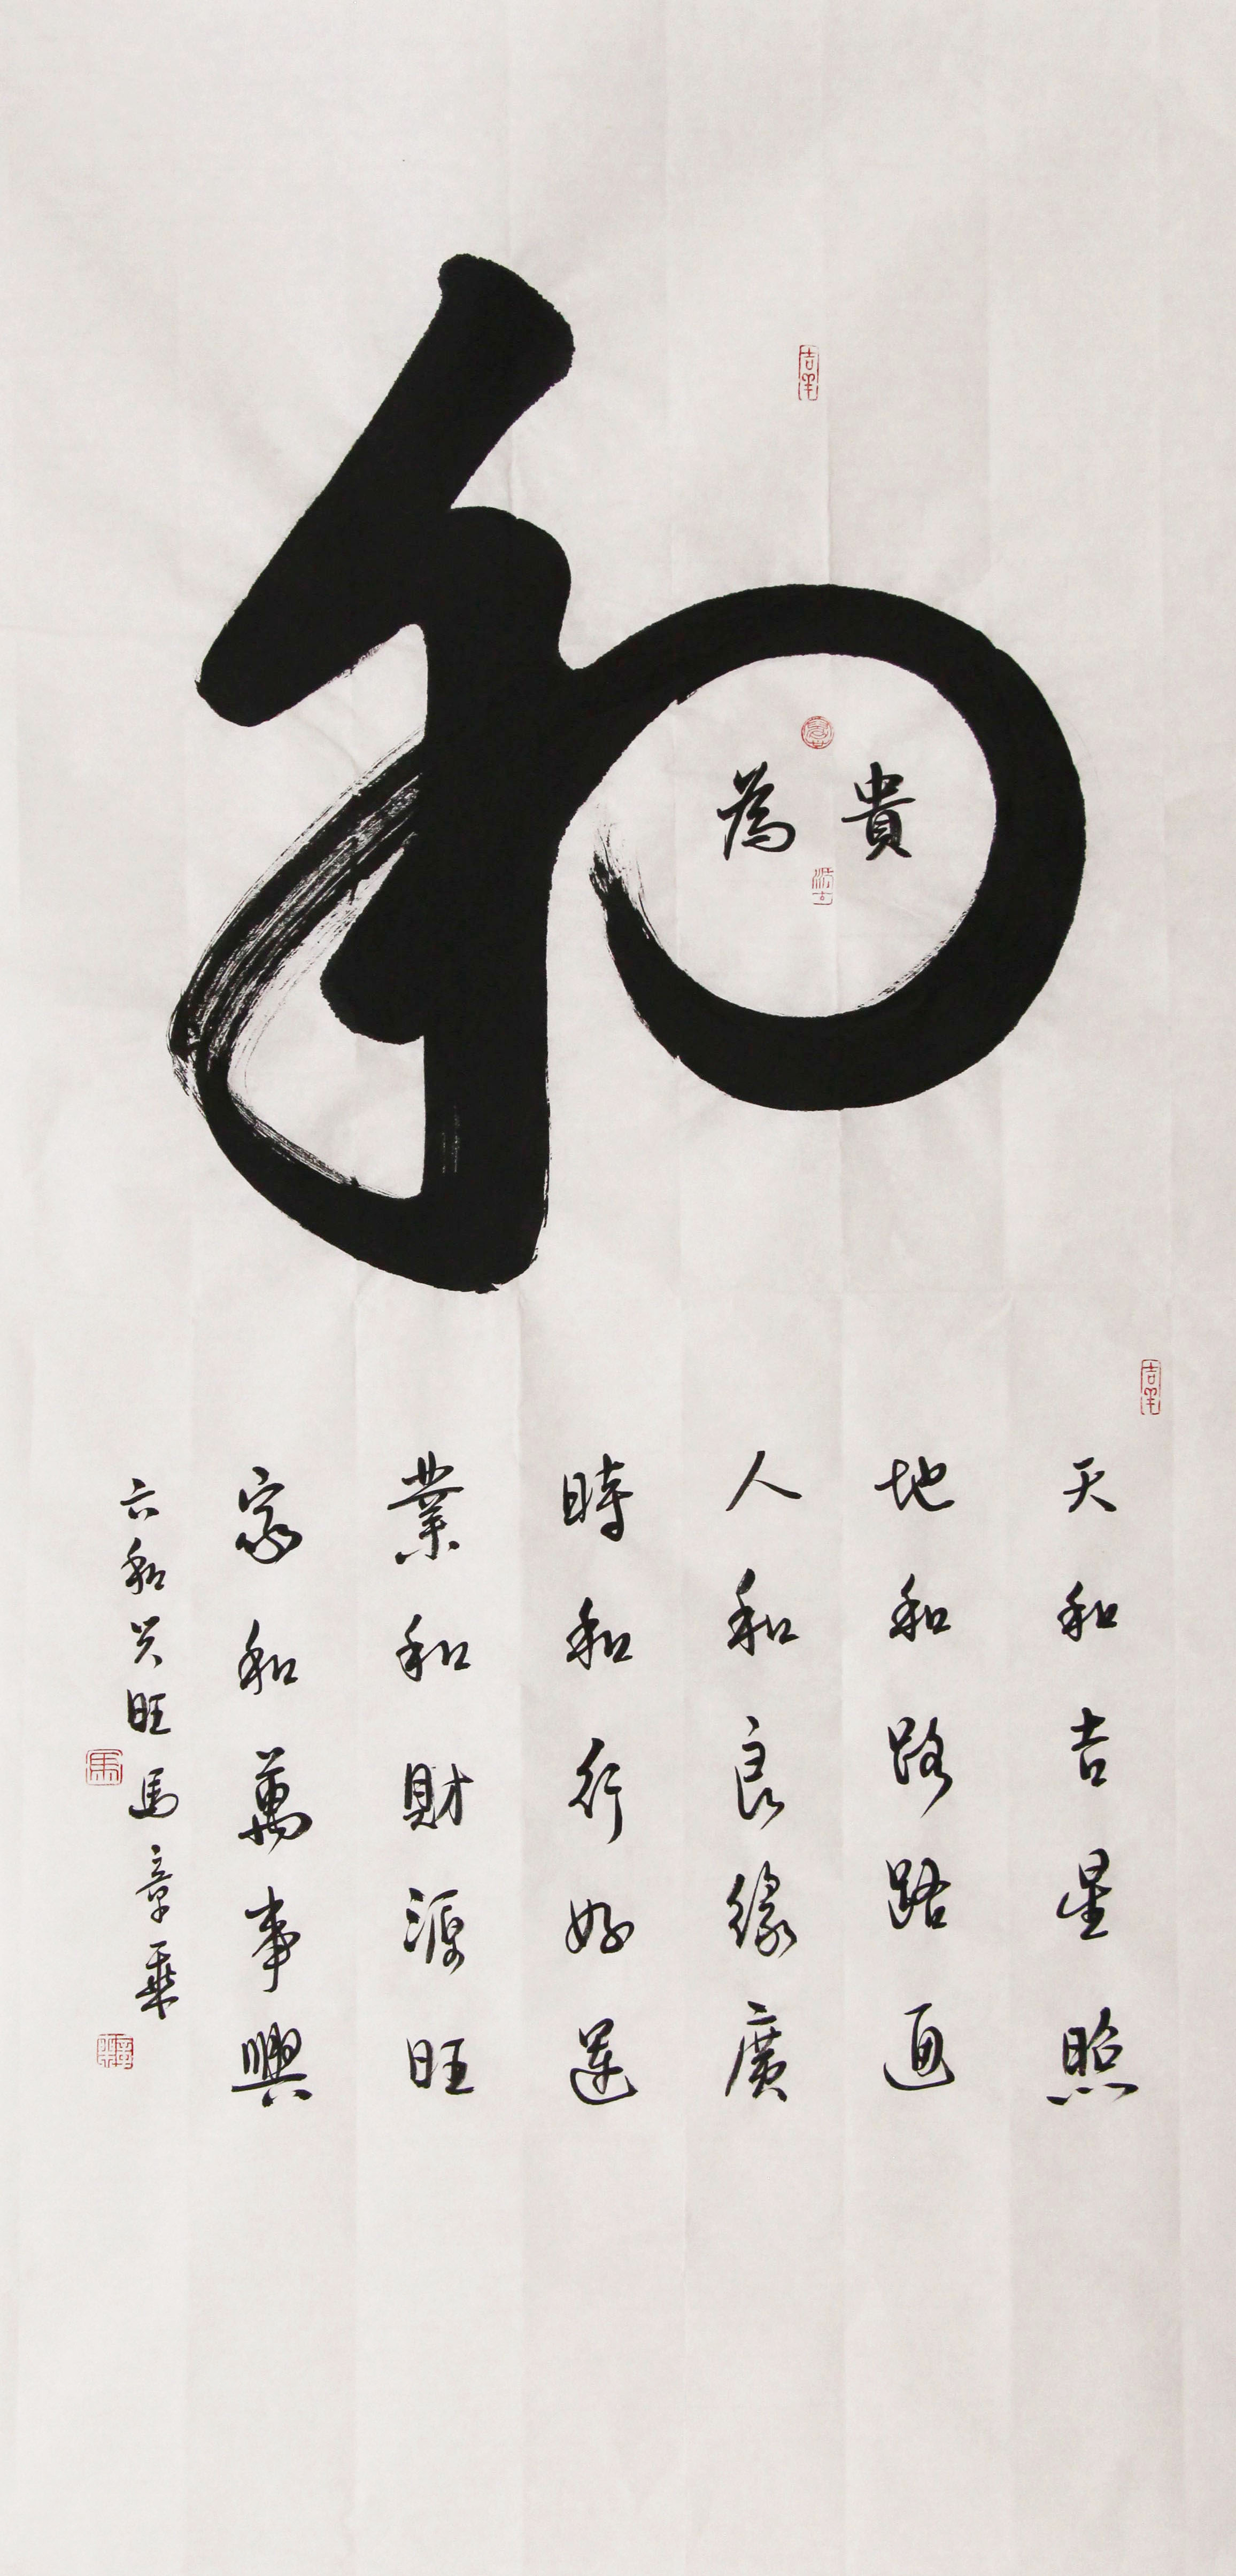 和
為貴
吉羊
吉羊
天和吉星照
地和路路通
人和良緣廣
時和行好運
業和財源旺
家和萬事興
六和兴旺 馬章乘
馬